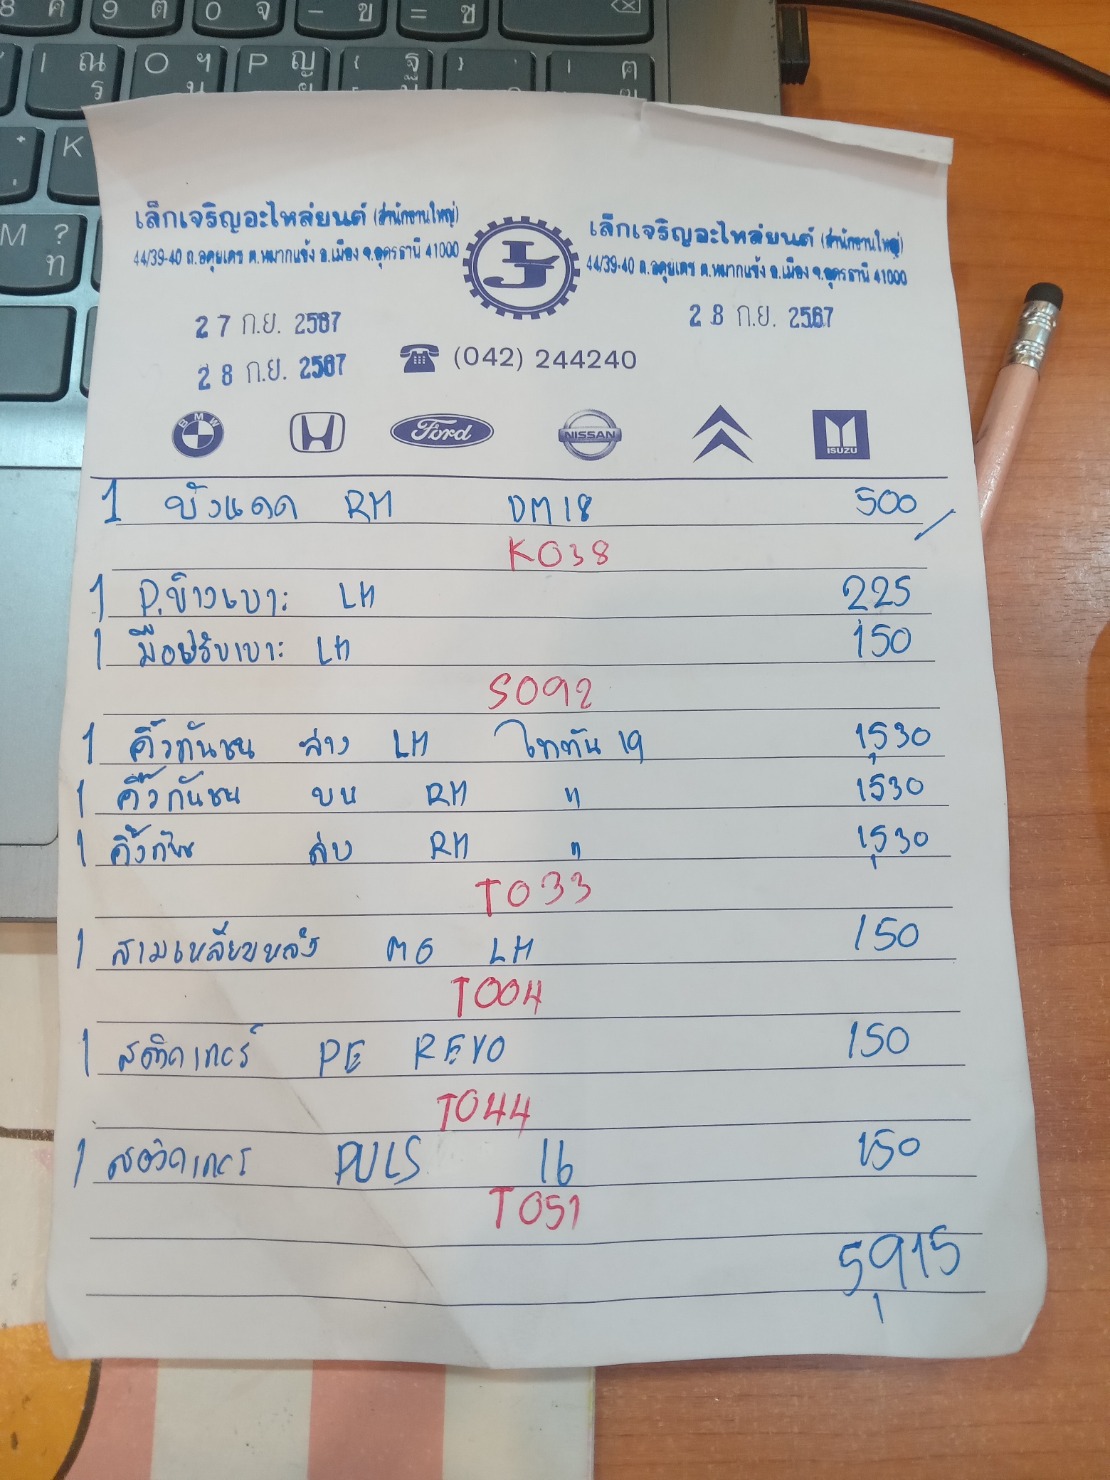 8 ค 9 ต 0 จ - ข = ช
ณ ร O ฯ น P ญ ย ฐ บ
K
M ? ท
เล็กเจริญอะไหล่ยนต์ (สำนักงานใหญ่)
44/39-40 ถ.อดุยเดช ต.หมากแข้ง อ.เมือง จ.อุดรธานี 41000
เล็กเจริญอะไหล่ยนต์ (สำนักงานใหญ่)
44/39-40 ถ.อดุยเดช ต.หมากแข้ง อ.เมือง จ.อุดรธานี 41000
LJ
27 ก.ย. 2567
28 ก.ย. 2567
28 ก.ย. 2567
(042) 244240
BMW Ford NISSAN ISUZU
1 บังแดด RH DM18 500
K038
1 P.ข้างเบาะ LH 225
1 มือปรับเบาะ LH 150
S092
1 คิ้วกันชน ล่าง LH ไททัน 19 1,530
1 คิ้วกันชน บน RH " 1530
1 คิ้วกัน ล่าง RH " 1,530
T033
1 สามเหลี่ยมหลัง MG LH 150
T004
1 สติกเกอร์ PE REVO 150
T044
1 สติกเกอร์ PULS 16 150
T051
5,915